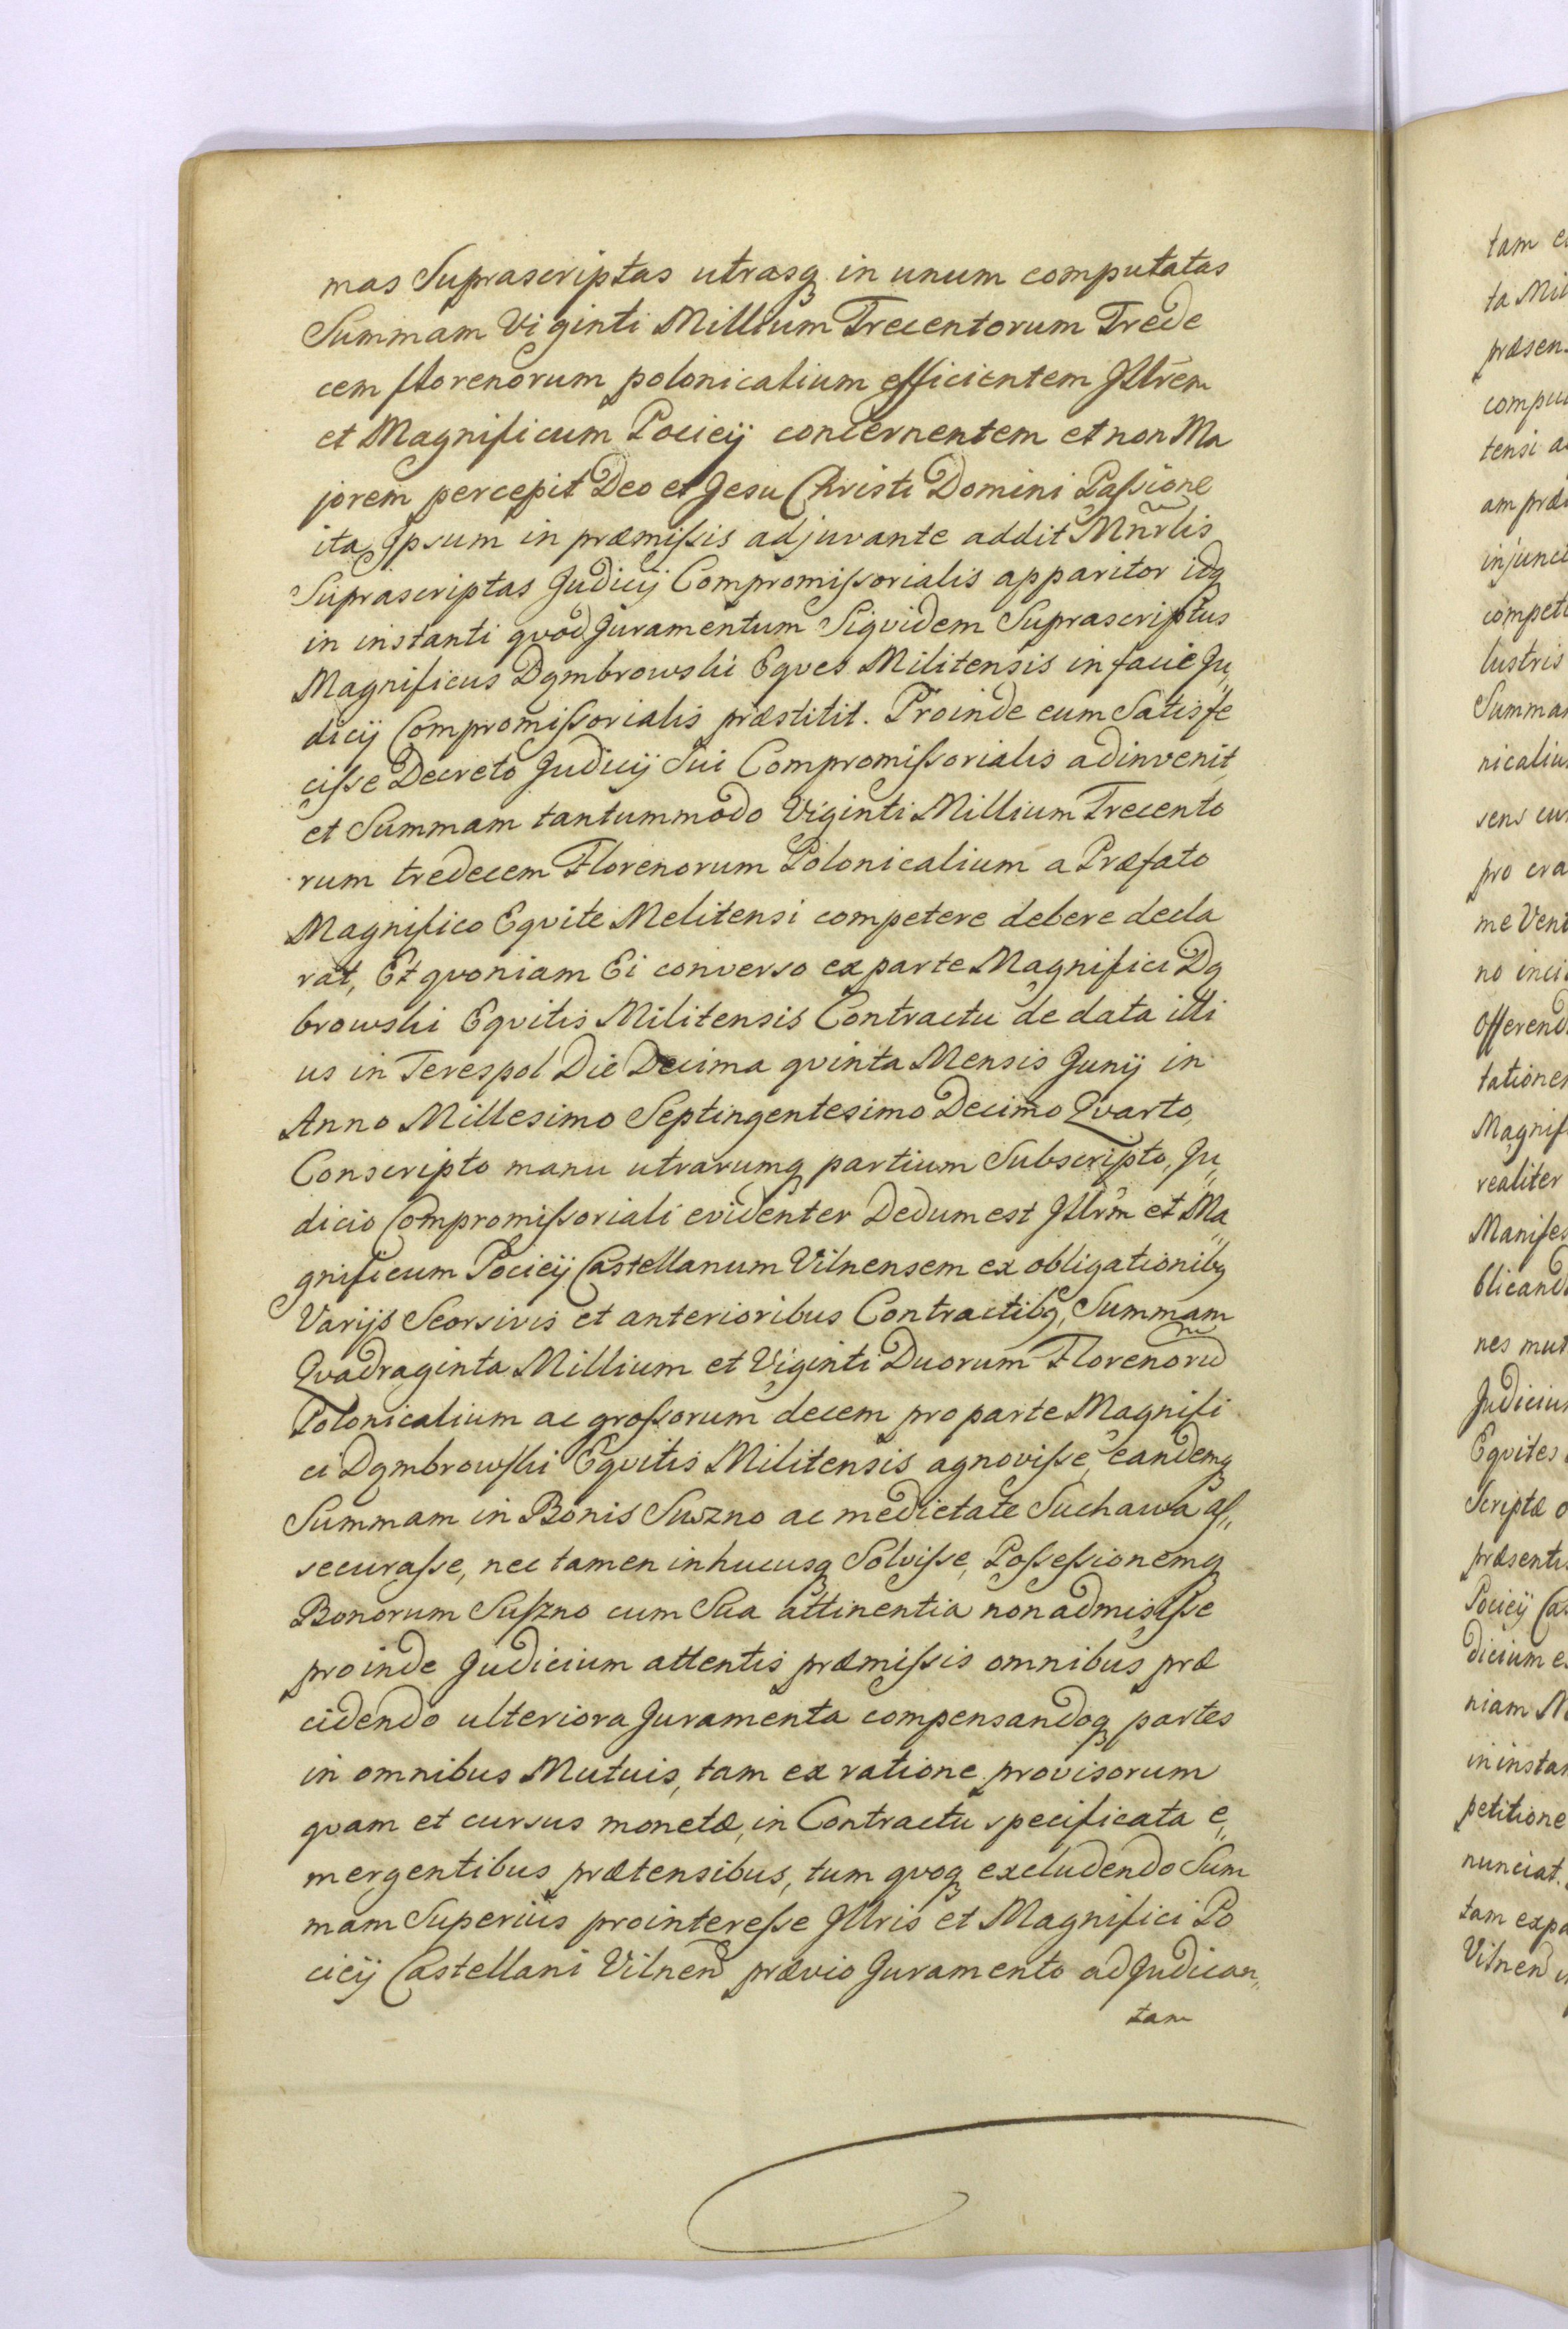 mas Suprascriptas utrasq in unum computatas
Summam Viginti Millium Trecentorum Trede
cem florenorum polonicalium efficientem Jllrem
et Magnificum Pociey concernentem et non Ma
jorem percepit Deo et Jesu Christi Domini Paſsione
ita Jpsum in præmiſsis adjuvante addit Mnrlis
Suprascriptas Judicij Compromiſsorialis apparitor idq
in instanti qvod Juramentum Siqvidem Suprascriptus
Magnificus Dąmbrowski Eqves Militensis in facie Ju„
dicij Compromiſsorialis præstitit. Proinde eum Satisfe
ciſse Decreto Judicij Sui Compromiſsorialis adinvenit
et Summam tantummodo Viginti Millium Trecento
rum tredecem Florenorum Polonicalium a Præfato
Magnifico Eqvite Melitensi competere debere decla
rat, Et qvoniam Ei converso ex parte Magnifici Dą
browski Eqvitis Militensis Contractu de data illi
us in Terespol Die Decima qvinta Mensis Junij in
Anno Millesimo Septingentesimo Decimo Qvarto,
Conscripto manu utrarumq partium Subscripto, Ju„
dicio Compromiſsoriali evidenter Dedum est Jllrm et Ma„
gnificum Pociey Castellanum Vilnensem ex obligationibq
Varijs Seorsivis et anterioribus Contractibq, Summam
Qvadraginta Millium et Viginti Duorum Florenoru
Polonicalium ac groſsorum decem pro parte Magnifi
ci Dąmbrowſki Eqvitis Militensis agnoviſse, eandemq
Summam in Bonis Suszno ac medietate Suchawa aſ„
securaſse, nec tamen inhucusq Solviſse, Poſseſsionemq
Bonorum Suſzno cum Sua attinentia non admisiſse
proinde Judicium attentis præmiſsis omnibus præ
cidendo ulteriora Juramenta compensandoq partes
in omnibus Mutuis, tam ex ratione provisorum
qvam et cursus monetæ, in Contractu specificata e„
mergentibus prætensibus, tum qvoq excludendo Sum
mam Superius pro intereſse Jllris et Magnifici Po
ciey Castellani Vilnen prævio Juramento ad Judican„
tam